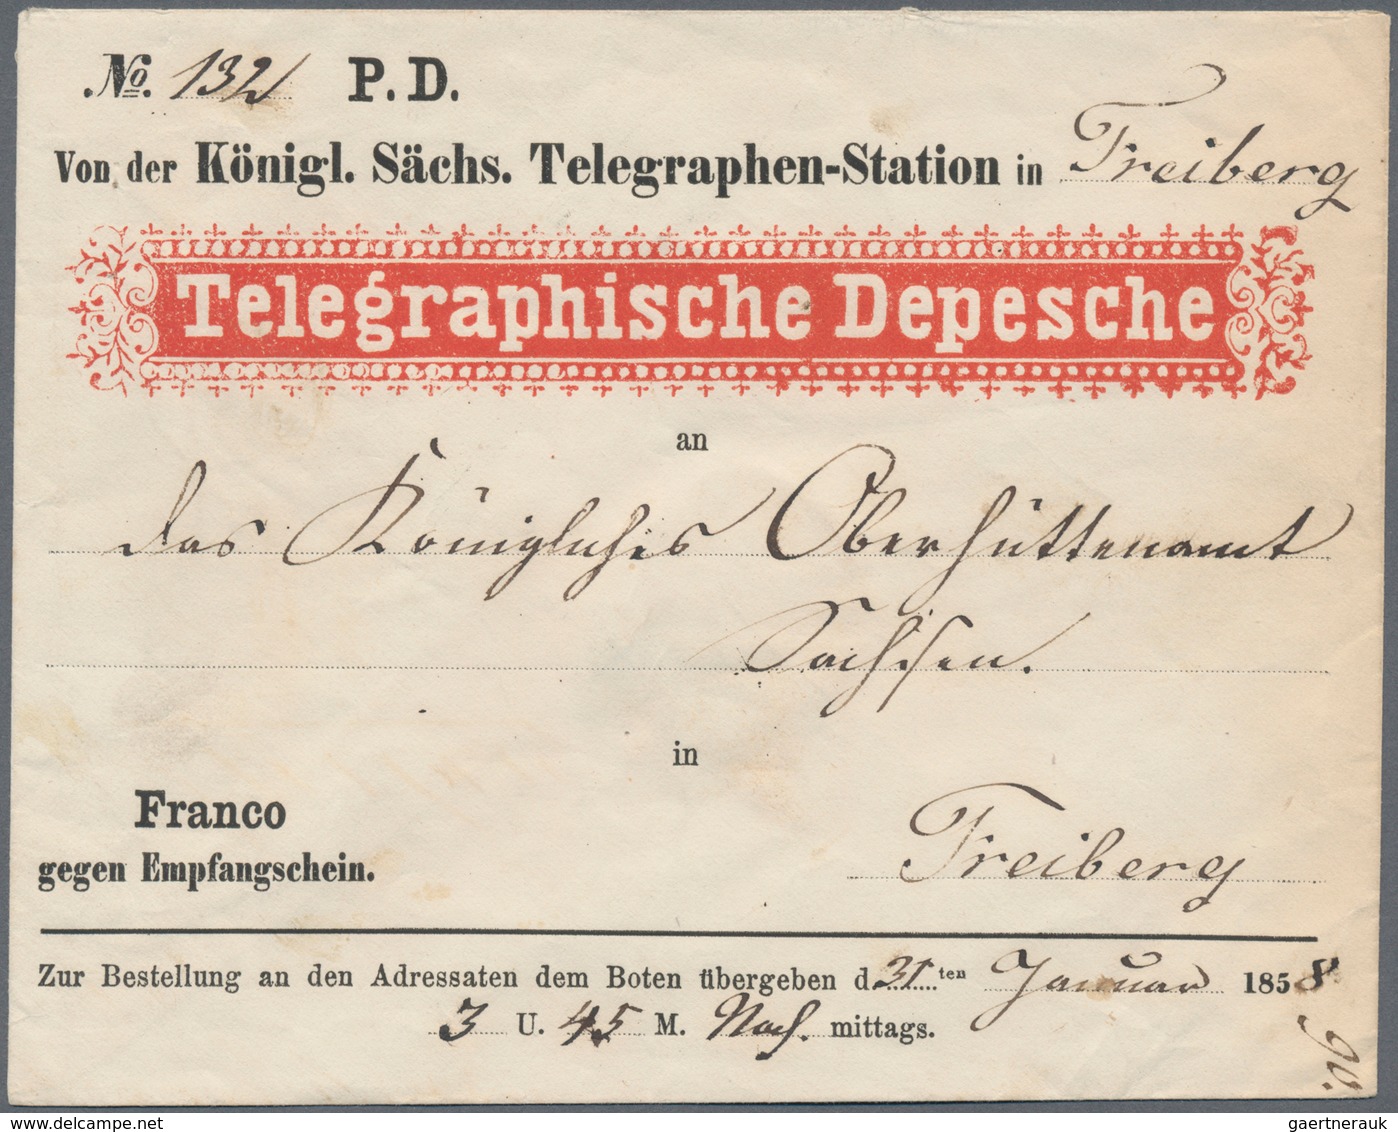 No. 132 P. D.
Von der Königl. Sächs. Telegraphen-Station in Freiberg
Telegraphische Depesche
an
das Königliches Oberhüttenamt
Sachsen.
in
Franco
gegen Empfangschein.
Freiberg
Zur Bestellung an den Adressaten dem Boten übergeben d. 31ten Januar 1858
3 U. 45 M. Nach mittags.
gaertnerauk